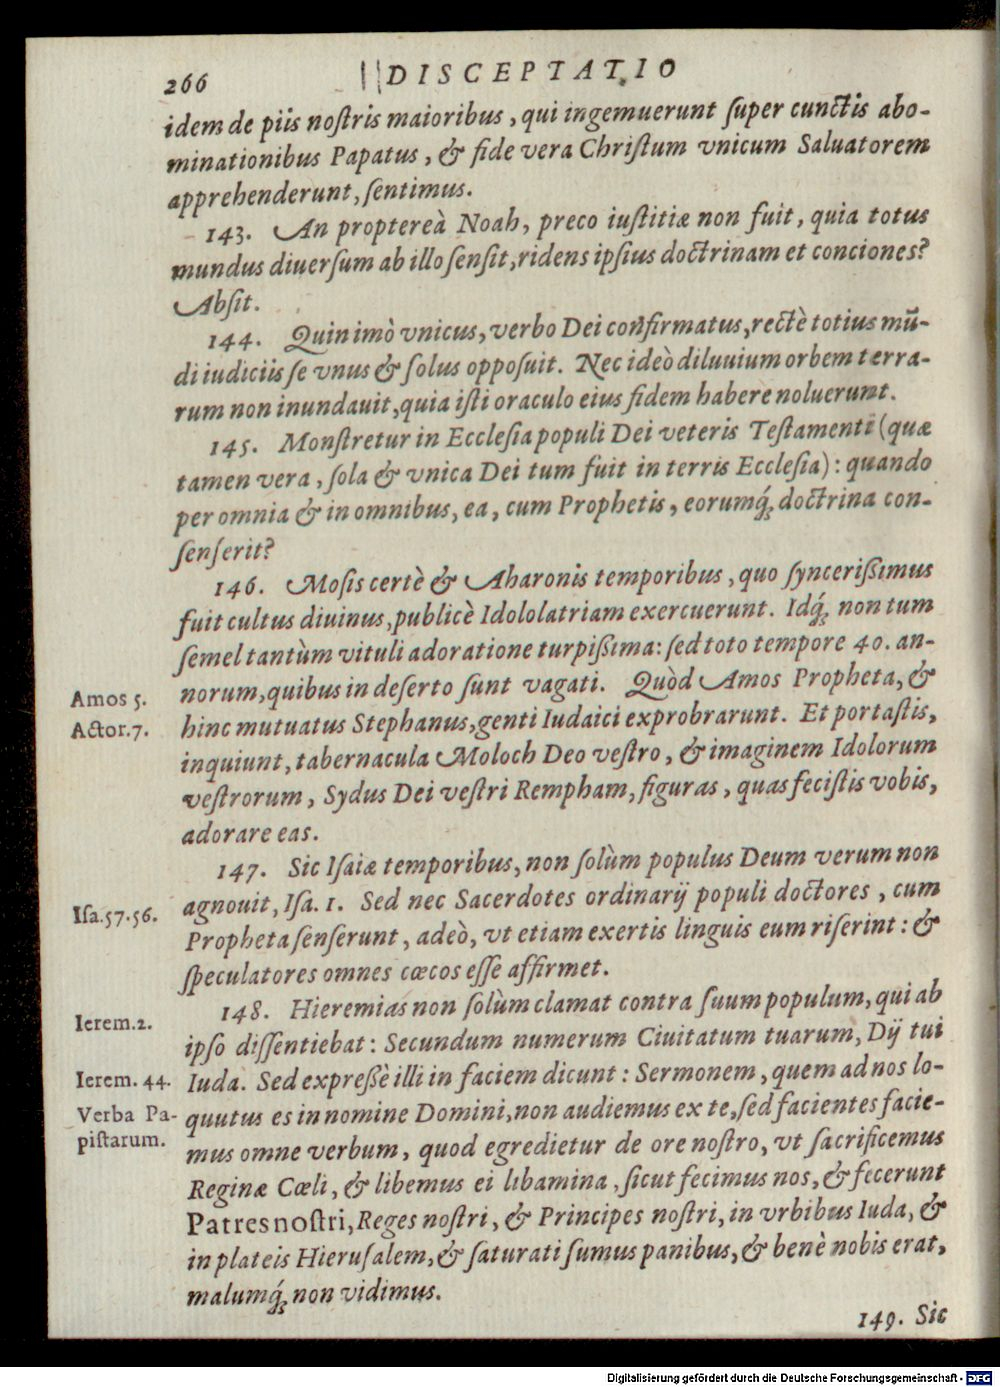 266 DISCEPTATIO
idem de piis noſtris maioribus, qui ingemuerunt ſuper cunctis abo-
minationibus Papatus, & fide vera Chriſtum vnicum Saluatorem
apprehenderunt, ſentimus.
143. An proptereà Noah, preco iuſtitiæ non fuit, quia totus
mundus diuerſum ab illo ſenſit, ridens ipſius doctrinam et conciones?
Abſit.
144. Quinimò vnicus, verbo Dei confirmatus, rectè totius mū-
di iudiciis ſe vnus & ſolus oppoſuit. Nec ideò diluuium orbem terra-
rum non inundauit, quia iſti oraculo eius fidem habere noluerunt.
145. Monſtretur in Eccleſia populi Dei veteris Teſtamenti (quæ
tamen vera, ſola & vnica Dei tum fuit in terris Eccleſia): quando
per omnia & in omnibus, ea, cum Prophetis, eorumq́; doctrina con-
ſenſerit?
146. Moſis certè & Aharonis temporibus, quo ſynceriſsimus
fuit cultus diuinus, publicè Idololatriam exercuerunt. Idq́; non tum
ſemel tantùm vituli adoratione turpiſsima: ſed toto tempore 40. an-
Amos 5. norum, quibus in deſerto ſunt vagati. Quòd Amos Propheta, &
Actor. 7. hinc mutuatus Stephanus, genti Iudaici exprobrarunt. Et portaſtis,
inquiunt, tabernacula Moloch Deo veſtro, & imaginem Idolorum
veſtrorum, Sydus Dei veſtri Rempham, figuras, quas feciſtis vobis,
adorare eas.
147. Sic Iſaiæ temporibus, non ſolùm populus Deum verum non
Iſa. 57. 56. agnouit, Iſa. 1. Sed nec Sacerdotes ordinarij populi doctores, cum
Propheta ſenſerunt, adeò, vt etiam exertis linguis eum riſerint: &
ſpeculatores omnes cœcos eſſe affirmet.
148. Hieremias non ſolùm clamat contra ſuum populum, qui ab
Ierem. 2. ipſo diſſentiebat: Secundum numerum Ciuitatum tuarum, Dij tui
Ierem. 44. Iuda. Sed expreſsè illi in faciem dicunt: Sermonem, quem ad nos lo-
Verba Pa- quutus es in nomine Domini, non audiemus ex te, ſed facientes facie-
piſtarum. mus omne verbum, quod egredietur de ore noſtro, vt ſacrificemus
Reginæ Cœli, & libemus ei libamina, ſicut fecimus nos, & fecerunt
Patres noſtri, Reges noſtri, & Principes noſtri, in vrbibus Iuda, &
in plateis Hieruſalem, & ſaturati ſumus panibus, & benè nobis erat,
malumq́; non vidimus.
149. Sic
Digitalisierung gefördert durch die Deutsche Forschungsgemeinschaft - DFG